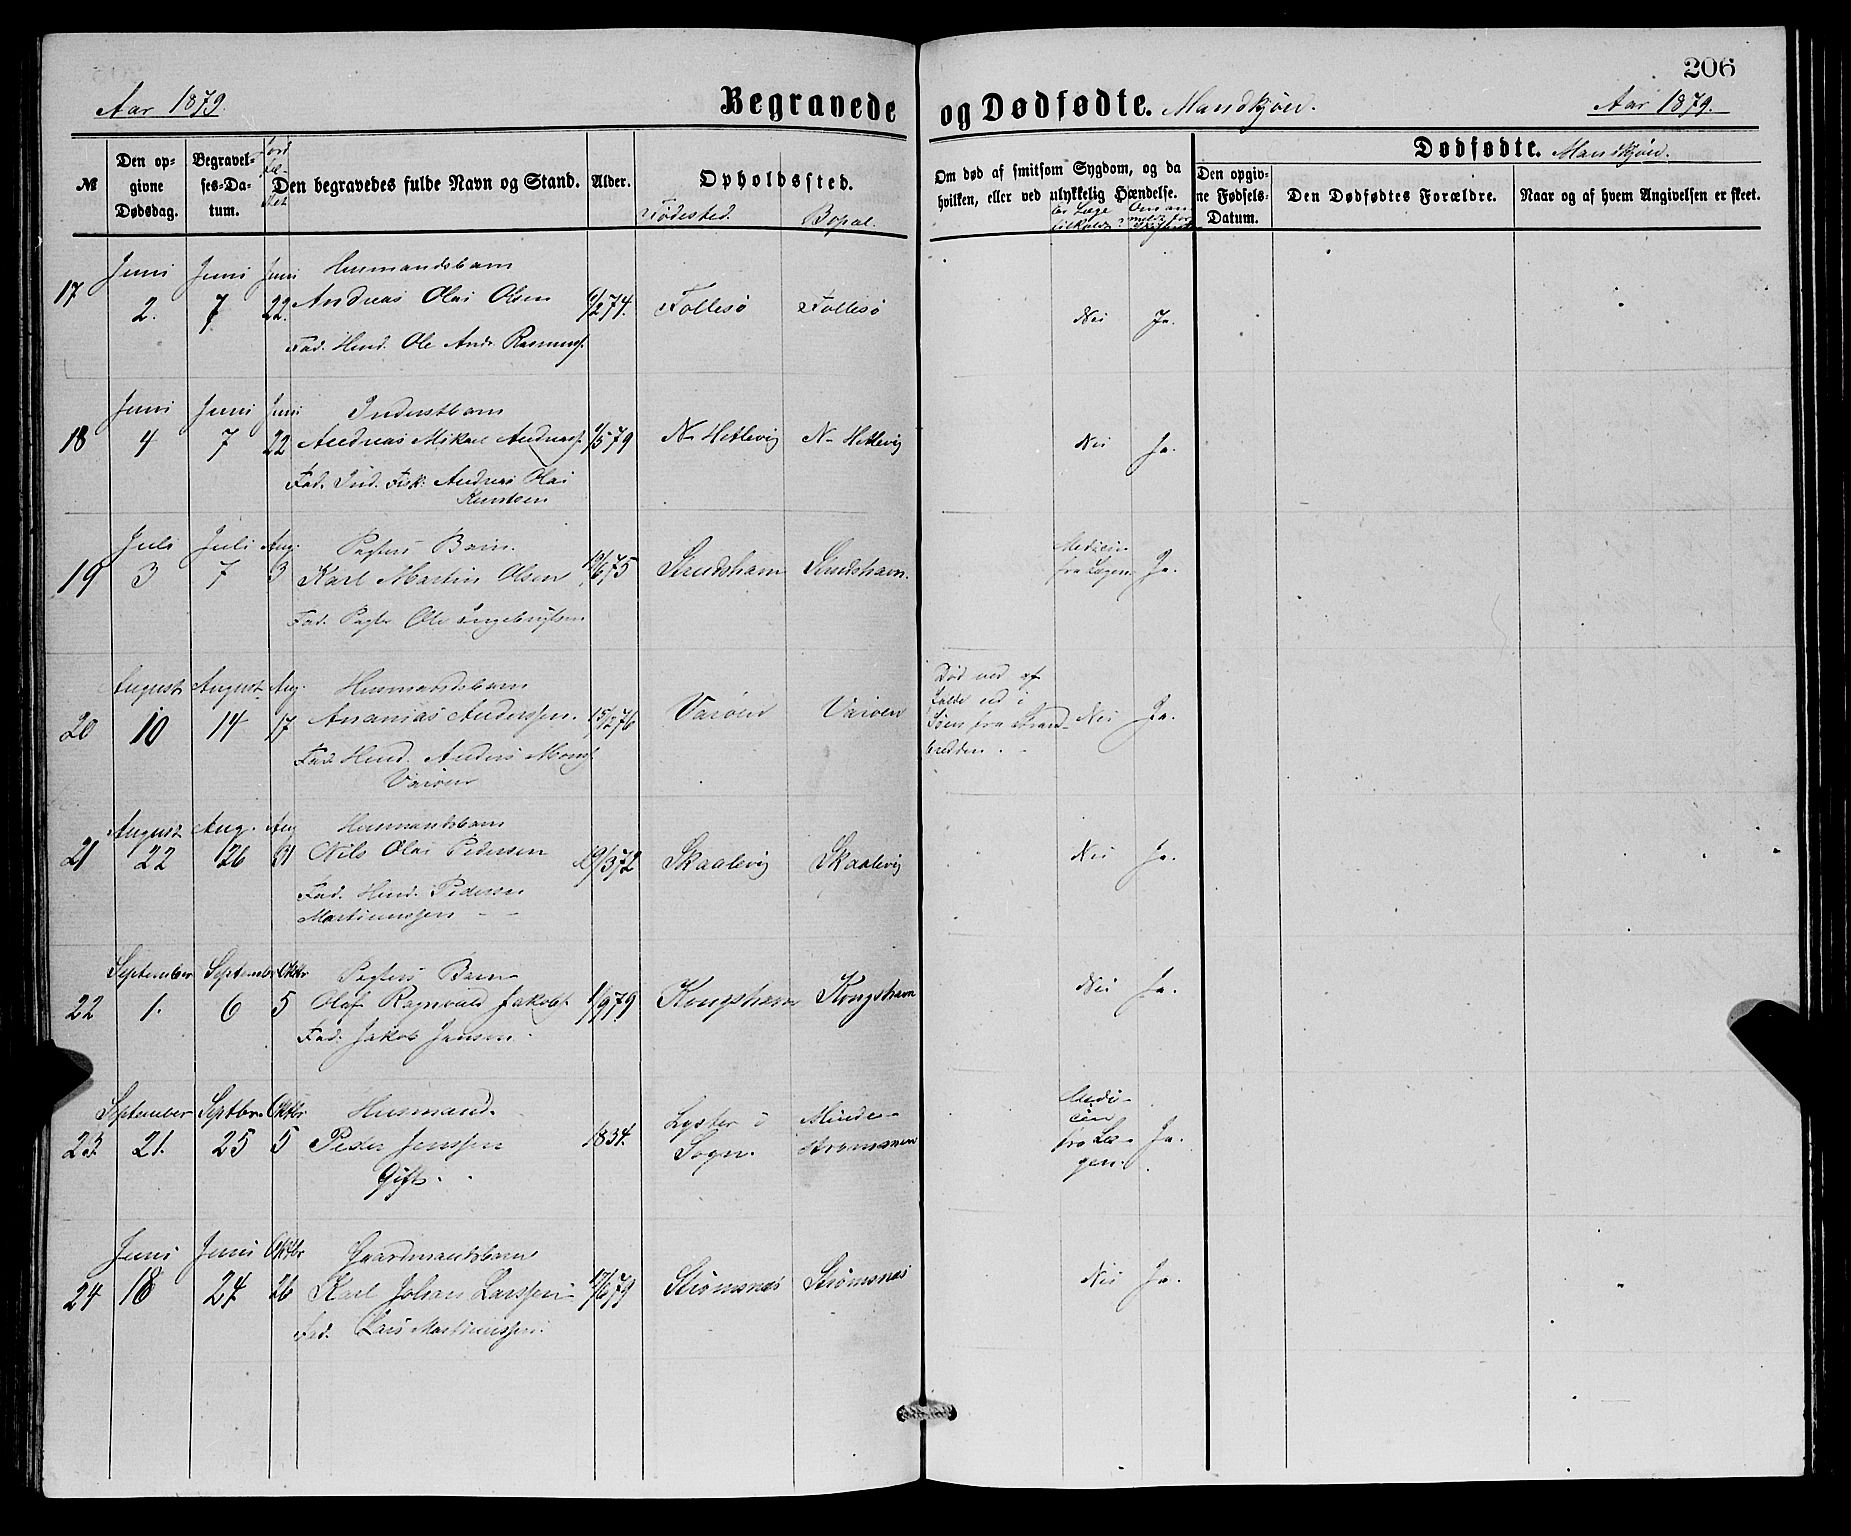 206
Aar 1879.
Begravede og Dødfødte. Mandkjøn.
Aar 1879.
№
Den opgivne Dødsdag.
Begravelses-Datum.
Den begravedes fulde Navn og Stand.
Alder.
Opholdssted.
Fødested.
Bopæl.
Om død af smitsom Sygdom, og da
hvilken, eller ved ulykkelig Hændelse.
Er Læge
Dødfødte. Mandkjøn.
Den opgivne Fødsels-Datum.
Den Dødfødtes Forældre.
Naar og af hvem Angivelsen er skeet.
Juni Juni Juni Husmandsbarn
17 2. 7 22. Andreas Olai Olsen 2 74. Follesø Follesø Nei Ja.
Fad. Husmd. Ole Andr. Rasmuss.
Juni Juni Juni Inderstbarn
18 4 7 22 Andreas Mikal Andreass. 5 79 N. Hetlevig N. Hetlevig Nei Ja.
Fad. Ind. Fisk. Andreas Olai
Knutsen
Juli Juli Aug. Pagters Barn. Medicin
19 3 7 3 Karl Martin Olsen 6 75 fra Lægen Ja.
Fad. Pagter Ole Engebrigtsen
August August Aug. Husmandsbarn Død ved at
20 10 14 17 Ananias Anderssen. 15/2 76 falde ud i
Søen fra Strand- Nei Ja.
Fad. Husmd. Anders Monss. bredden.
August Aug. Aug Husmandsbarn
21 22 26 31 Nils Olai Pedersen 29/3 72 Skaalevig Skaalevig Nei Ja.
Fad. Husmd. Peder
Martinussen
September September Oktbr Pagters Barn
22 1. 6 5 Olaf Ragnvald Jakobs. 1/9 79 Kongshavn Kongshavn Nei Ja.
Fad. Jakob Jansen.
September Septbr. Oktbr Husmand. Medi-
23. 21. 25 5 Peder Jenssen 1834. Lyster i cin
Sogn. fra Læ- Ja.
Gift. gen.
Juni Juni Oktbr Gaardmandsbarn
24 18 24 26 Karl Johan Larssen 17/6 79 Strømsnæs Strømsnæs Nei Ja.
Fad. Lars Martinussen.